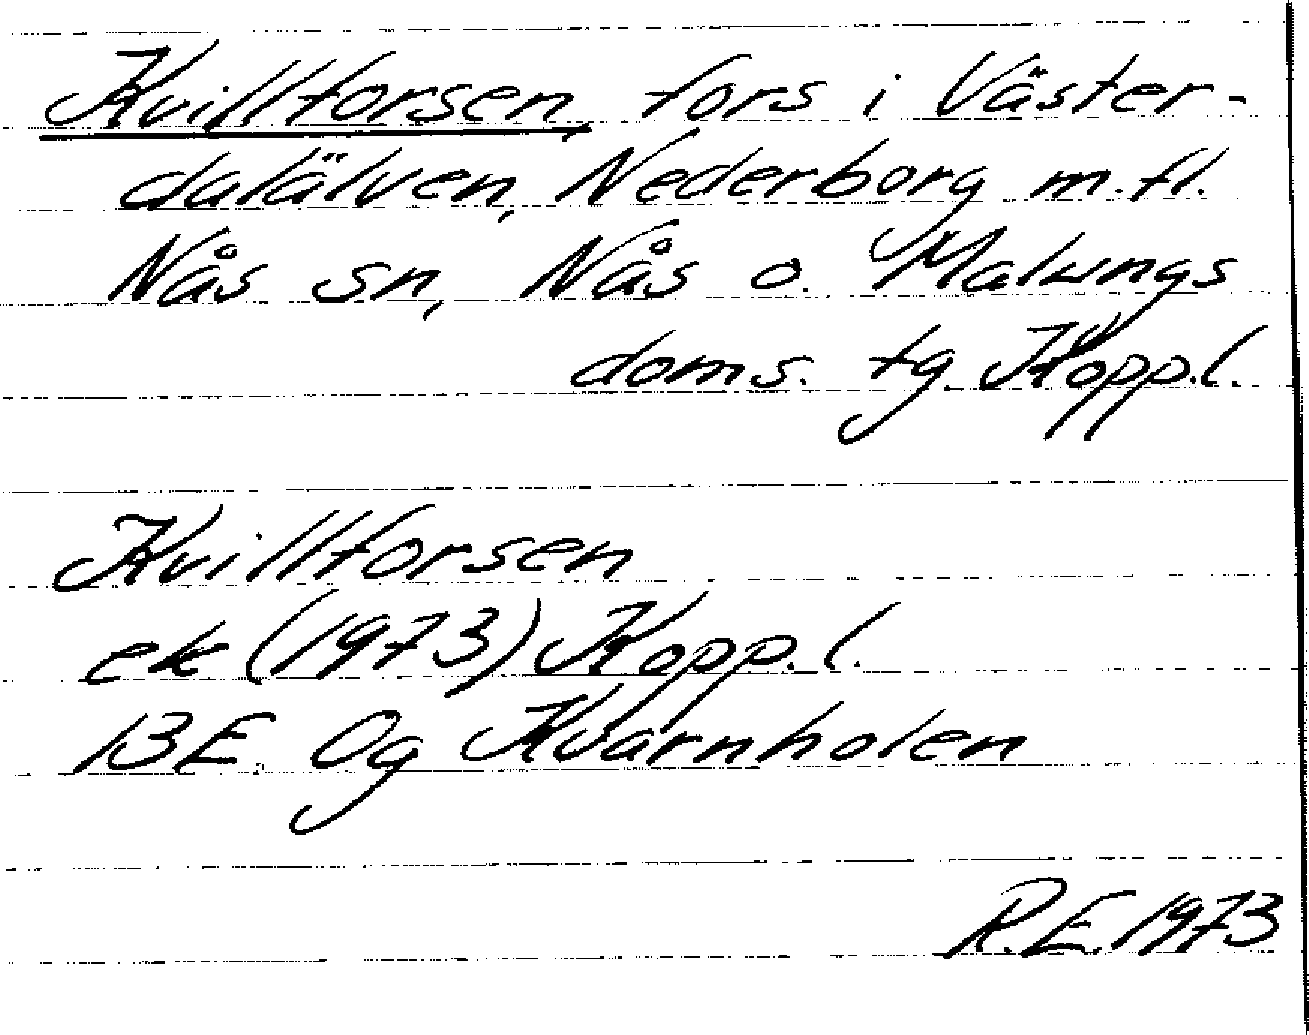 Kvillforsen, fors i Väster-
dalälven, Nederborg m.fl.
Nås sn, Nås o. Malungs
doms. tg Kopp.l.
Kvillforsen
ek (1973) Kopp.l.
13E Og Kvarnholen
R.E. 1973